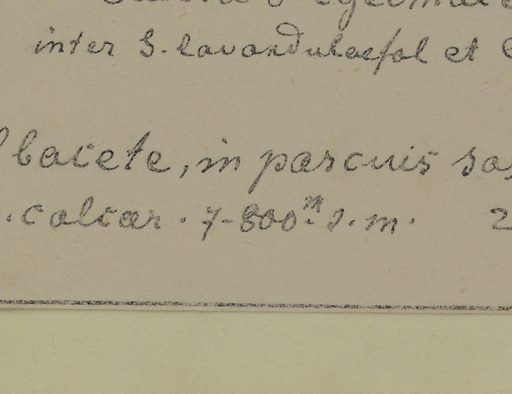 inter S. lavandulaefol et
bacete, in pascuis
. calcar. 7-800 m. s. m. 2